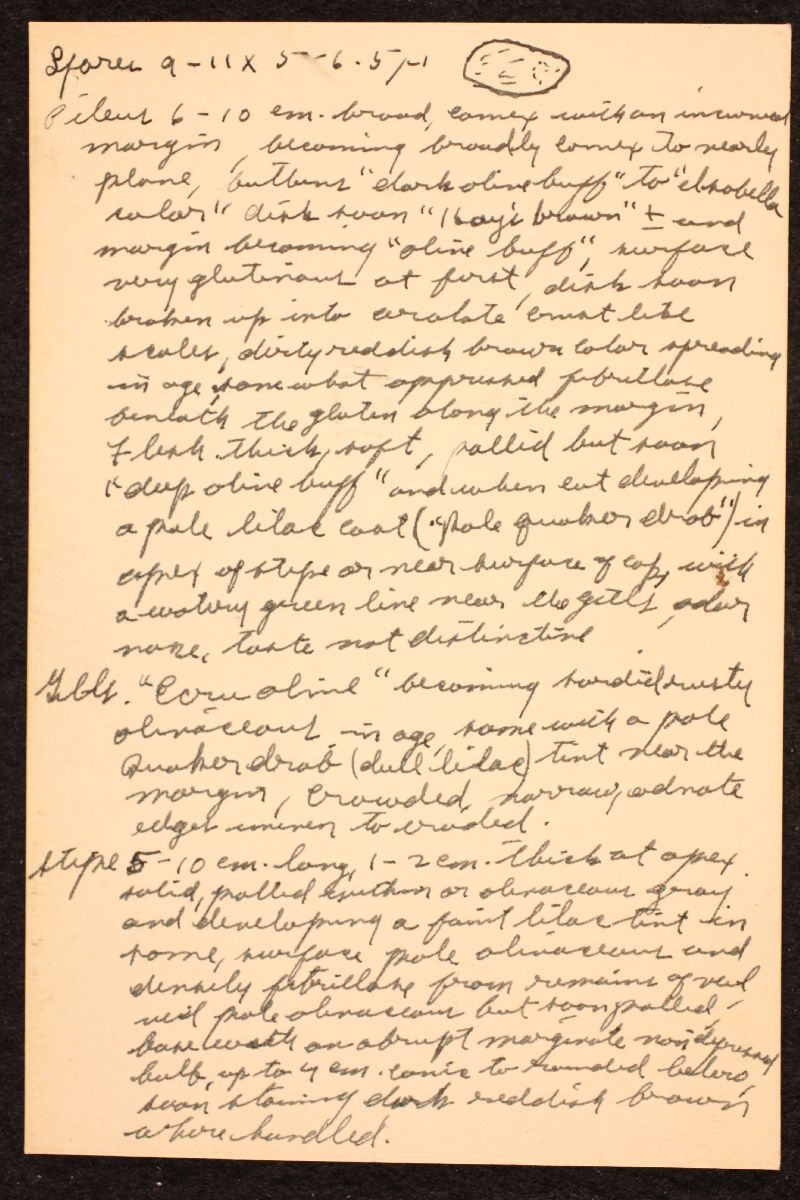 Spores 9-11 x 5-6.5 μ
Pileus 6-10 cm. broad, convex with an incurved
margin, becoming broadly convex to nearly
plane, buttons "dark olive buff" to "isabella
color" disk soon "Hay's brown" ± and
margin becoming "olive buff", surface
very glutinous at first, disk soon
broken up into areolate crust like
scales, dirty reddish brown color spreading
in age, somewhat appressed fibrillose
beneath the gluten along the margin,
Flesh thick, soft, pallid but soon
"deep olive buff" and when cut developing
a pale lilac cast ("pale quaker drab") in
apex of stipe or near surface of cap, with
a watery green line near the gills, odor
none, taste not distinctive
Gills. "Ecru olive" becoming sordid rusty
olivaceous in age, some with a pale
Quaker drab (dull lilac) tint near the
margin, crowded, narrow, adnate
edges uneven to eroded.
stipe 5-10 cm. long, 1-2 cm. thick at apex.
solid, pallid within or olivaceous gray
and developing a faint lilac tint in
some, surface pale olivaceous and
densely fibrillose from remains of veil
veil pale olivaceous but soon pallid,
base with an abrupt marginate non depressed
bulb, up to 4 cm. conic to rounded below,
soon staining dark reddish brown
where handled.